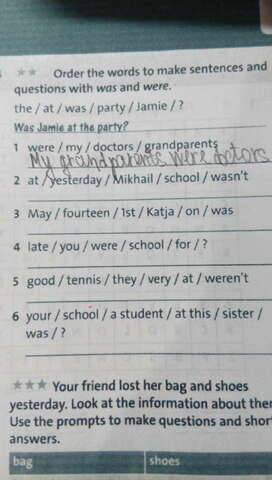 ★★ Order the words to make sentences and
questions with was and were.
the / at / was / party / Jamie / ?
Was Jamie at the party?
1 were / my / doctors / grandparents
My grandparents were doctors
2 at / yesterday / Mikhail / school / wasn't
3 May / fourteen / 1st / Katja / on / was
4 late / you / were / school / for / ?
5 good / tennis / they / very / at / weren't
6 your / school / a student / at this / sister /
was / ?
★★★ Your friend lost her bag and shoes
yesterday. Look at the information about them
Use the prompts to make questions and short
answers.
bag shoes